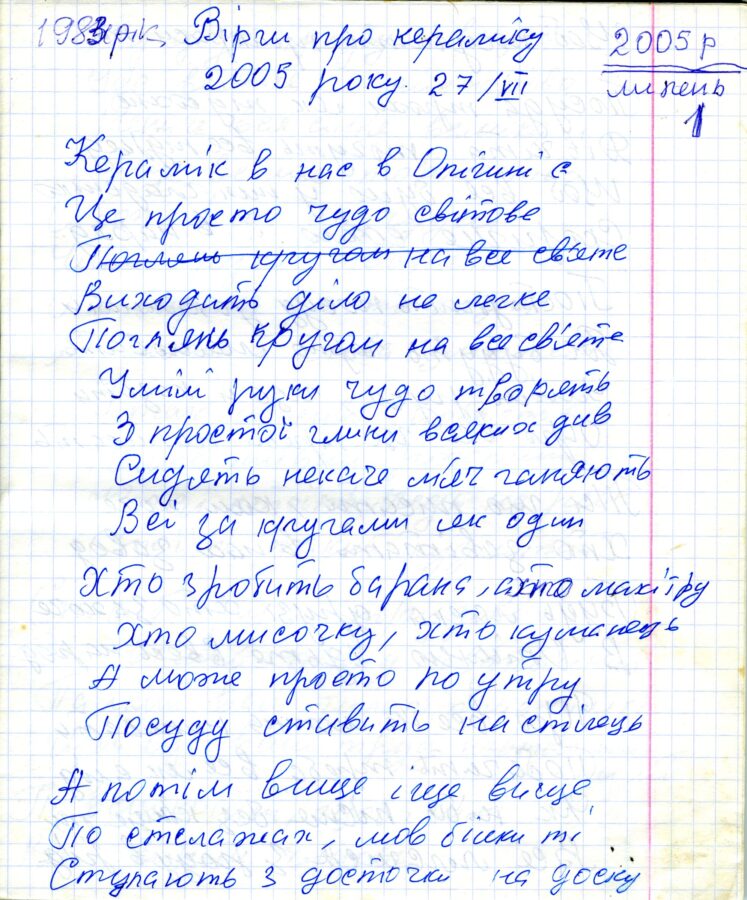 1983 рік, Вірши про кераміку
2005 року. 27/VII
2005 р
липень
1
Керамік в нас в Опішні є
Це просто чудо світове
Поглянь кругом на все св'яте
Виходить діло не легке
Поглянь кругом на все св'яте
Умілі руки чудо творять
З простої глини всяких див
Сидять неначе м'яч ганяють
Всі за кругами як один
Хто зробить барана, а хто макітру
Хто мисочку, хто куманець
А може просто по утру
Посуду ставить на стілець
А потім вище іще вище
По стелажах, мов білки ті
Ступають з досточки на доску